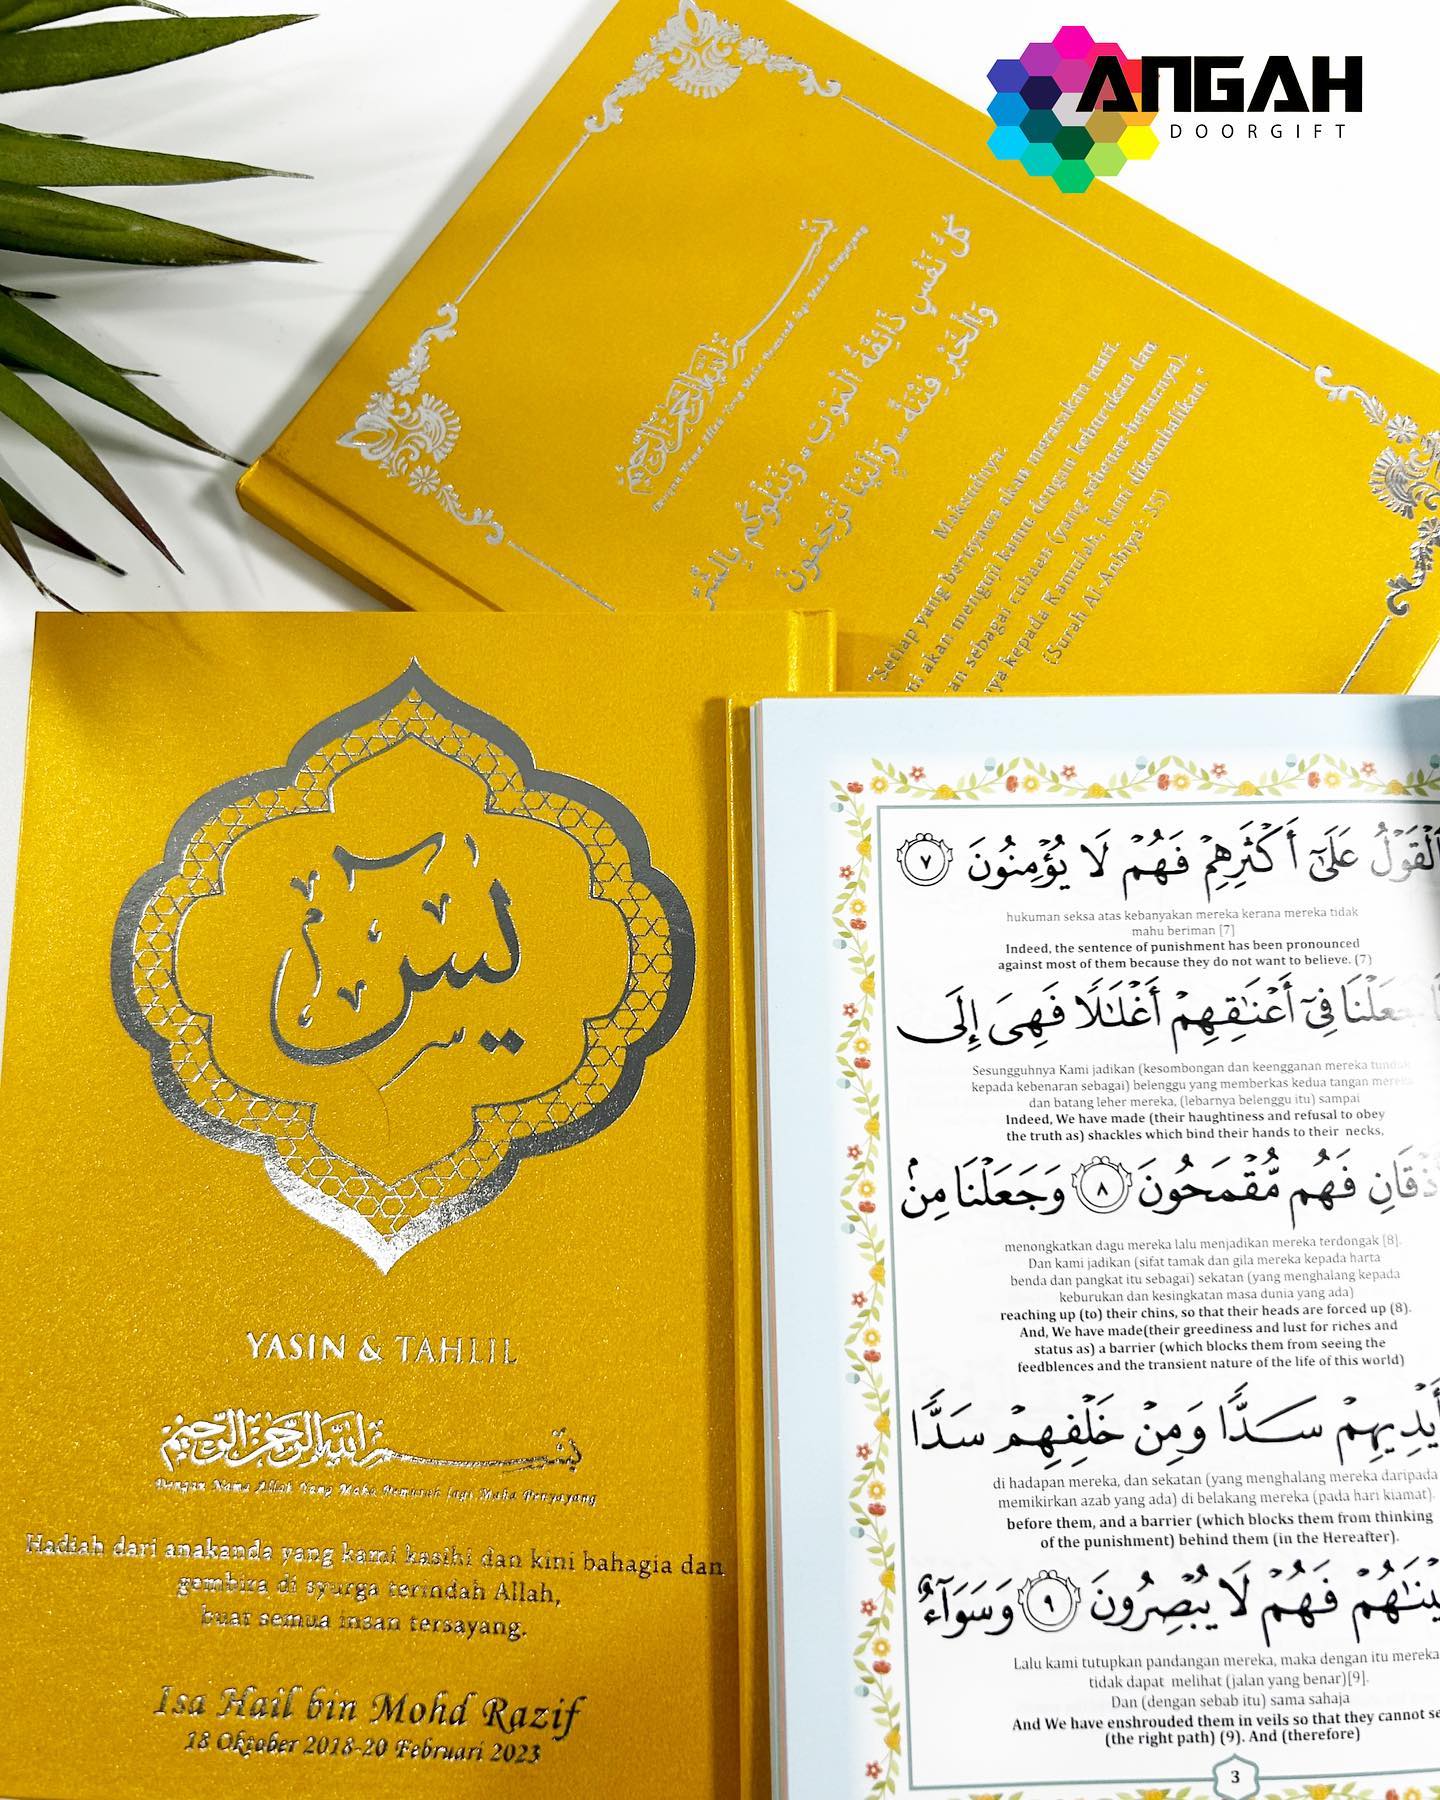 ANGAH
DOORGIFT
Dengan Nama Allah Yang Maha Pemurah lagi Maha Penyayang
كُلُّ نَفْسٍ ذَائِقَةُ الْمَوْتِ ۗ وَنَبْلُوكُم بِالشَّرِّ
وَالْخَيْرِ فِتْنَةً ۖ وَإِلَيْنَا تُرْجَعُونَ
Maksudnya:
"Setiap yang bernyawa akan merasakan mati.
akan menguji kamu dengan keburukan dan
sebagai cubaan (yang sebenar-benarnya).
kepada Kamilah, kamu dikembalikan."
(Surah Al-Anbiya': 35)
يس
YASIN & TAHLIL
بسم الله الرحمن الرحيم
Dengan Nama Allah Yang Maha Pemurah lagi Maha Penyayang
Hadiah dari anakanda yang kami kasihi dan kini bahagia dan
gembira di syurga terindah Allah,
buat semua insan tersayang.
Isa Hail bin Mohd Razif
18 Oktober 2018-20 Februari 2023
الْقَوْلُ عَلَىٰٓ أَكْثَرِهِمْ فَهُمْ لَا يُؤْمِنُونَ ٧
hukuman seksa atas kebanyakan mereka kerana mereka tidak
mahu beriman [7]
Indeed, the sentence of punishment has been pronounced
against most of them because they do not want to believe. (7)
جَعَلْنَا فِىٓ أَعْنَٰقِهِمْ أَغْلَٰلًا فَهِىَ إِلَى
Sesungguhnya Kami jadikan (kesombongan dan keengganan mereka tunduk
kepada kebenaran sebagai) belenggu yang memberkas kedua tangan mereka
dan batang leher mereka, (lebarnya belenggu itu) sampai
Indeed, We have made (their haughtiness and refusal to obey
the truth as) shackles which bind their hands to their necks,
فَهُم مُّقْمَحُونَ ٨ وَجَعَلْنَا مِنۢ
menongkatkan dagu mereka lalu menjadikan mereka terdongak [8].
Dan kami jadikan (sifat tamak dan gila mereka kepada harta
benda dan pangkat itu sebagai) sekatan (yang menghalang kepada
keburukan dan kesingkatan masa dunia yang ada)
reaching up (to) their chins, so that their heads are forced up (8).
And, We have made(their greediness and lust for riches and
status as) a barrier (which blocks them from seeing the
feedblences and the transient nature of the life of this world)
أَيْدِيهِمْ سَدًّا وَمِنْ خَلْفِهِمْ سَدًّا
di hadapan mereka, dan sekatan (yang menghalang mereka daripada
memikirkan azab yang ada) di belakang mereka (pada hari kiamat).
before them, and a barrier (which blocks them from thinking
of the punishment) behind them (in the Hereafter).
فَهُمْ لَا يُبْصِرُونَ ٩ وَسَوَآءٌ
Lalu kami tutupkan pandangan mereka, maka dengan itu mereka
tidak dapat melihat (jalan yang benar)[9].
Dan (dengan sebab itu) sama sahaja
And We have enshrouded them in veils so that they cannot
(the right path) (9). And (therefore)
3